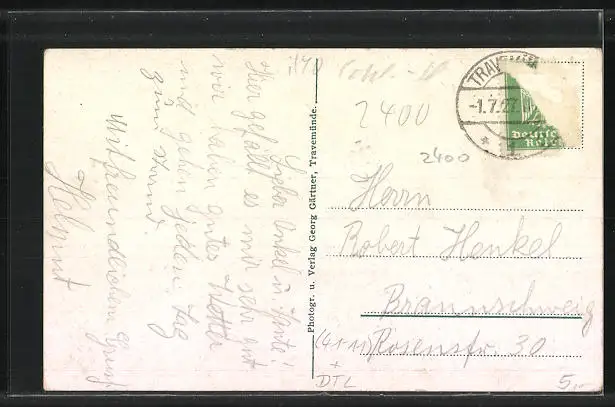 Lieber Onkel u. Tante!
Hier gefällt es mir sehr gut
wir haben gutes Wetter
und gehen jeden Tag
zum Strand.
Mit freundlichem Gruß
Helmut
Photogr. u. Verlag Georg Gärtner, Travemünde.
2400
2400
TRAVEMÜN
-1.7.27
Deutsc
Reic
Herrn
Robert Henkel
Braunschweig
Rosenstr. 30
+
DTL
5,-